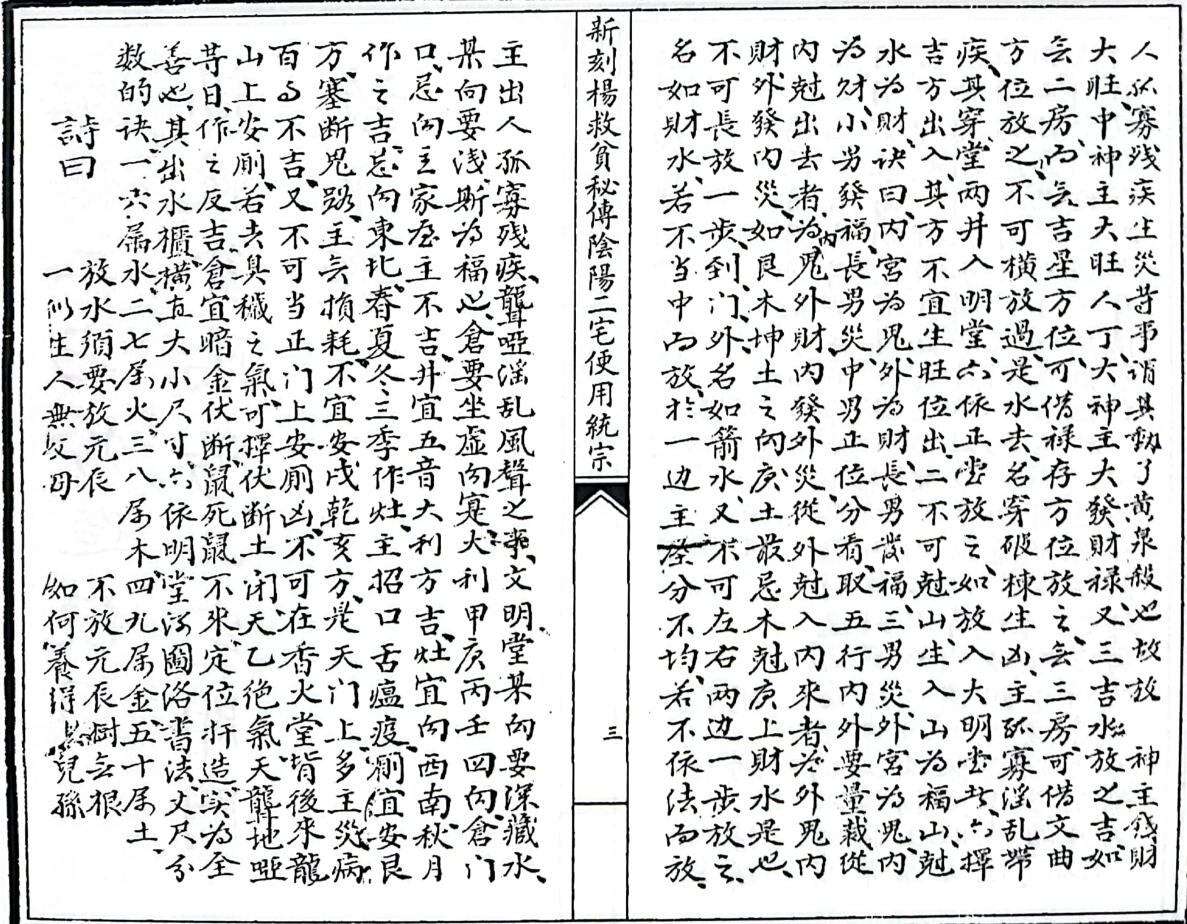 人孤寡残疾生災䓁事谓其動了黄泉殺也故放 神主錢財
大旺中神主大旺人丁大神主大發財禄又三吉水放之吉如
無二房而無吉星方位可借禄存方位放之無三房可借文曲
方位放之不可横放過是水去名穿破棟生凶主孤寡淫乱带
疾其穿堂两井入明堂六依正堂放之如放入大明堂 六擇
吉方出入其方不宜生旺位出二不可尅山生入山為福山尅
水為財诀曰内宮為鬼外為財長男發福三男災外宮為鬼内
為财小男發福長男災中男正位分看取五行内外要量裁從
内尅出去者為内鬼外財内發外災從外尅入内來者为外鬼内
財外發内災如艮木坤土之向庚土最忌木尅庚上財水是也
不可長放一步到门外名如箭水又不可左右两边一步放之
名如財水若不当中而放於一边主 分不均若不依法而放
新刻楊救貧秘傳陰陽二宅便用統宗
三
主出人孤寡残疾聾啞淫乱風聲之事文明堂某向要深藏水
某向要浅斯為福也倉要坐虚向寔大利甲庚丙壬四向倉门
口忌向主家屋主不吉井宜五音大利方吉灶宜向西南秋月
作之吉忌向東北春夏冬三季作灶主招口舌瘟疫厠宜安艮
方塞断鬼路主無損耗不宜安戌乾亥方是天门上多主災病
百 不吉又不可当正门上安厠凶不可在香火堂背後來龍
山上安厠若去臭穢之氣可擇伏断土闭天乙絶氣天聾地啞
䓁日作之反吉倉宜暗金伏断鼠死鼠不來定位扦造实為全
善也其出水櫃横直大小尺寸六依明堂河圖洛書法丈尺分
数的诀一六属水二七属火三八属木四九属金五十属土
詩曰
放水須要放元辰 不放元辰樹無根
一似生人無父母 如何養得 兒孫